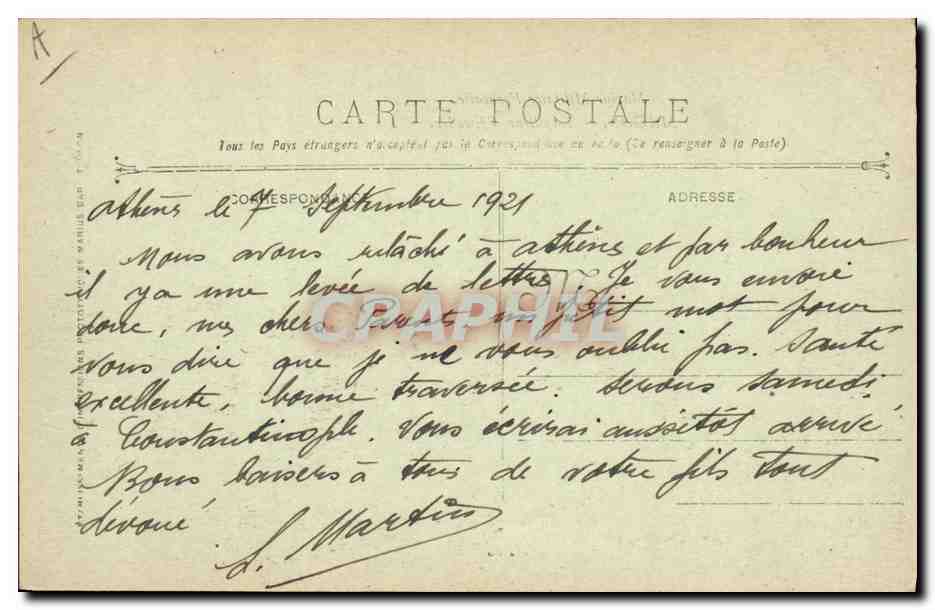 A
CARTE POSTALE
Tous les Pays étrangers n'acceptent pas la Correspondance au recto (Se renseigner à la Poste)
CORRESPONDANCE
ADRESSE
Athènes le 7 Septembre 1921
Nous avons relâché à Athènes et par bonheur
il y a une levée de lettres. Je vous envoie
donc, mes chers Parents un petit mot pour
vous dire que je ne vous oublie pas. Santé
excellente, bonne traversée. Serons samedi
à Constantinople. Vous écrirai aussitôt arrivé
Bons baisers à tous de votre fils tout
dévoué
L. Martin
MARIUS BAR, TOULON
CPAPHIL